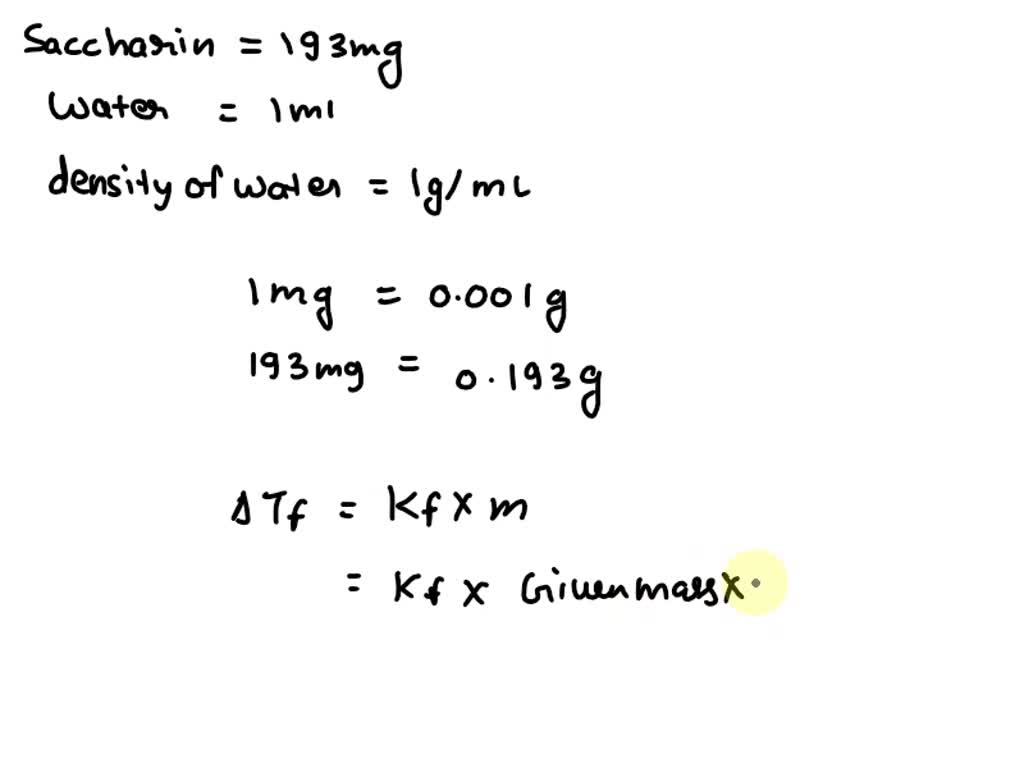 Saccharin = 193mg
Water = 1ml
density of water = 1g/mL
1mg = 0.001g
193mg = 0.193g
ΔTf = Kf x m
= Kf x Given mass x